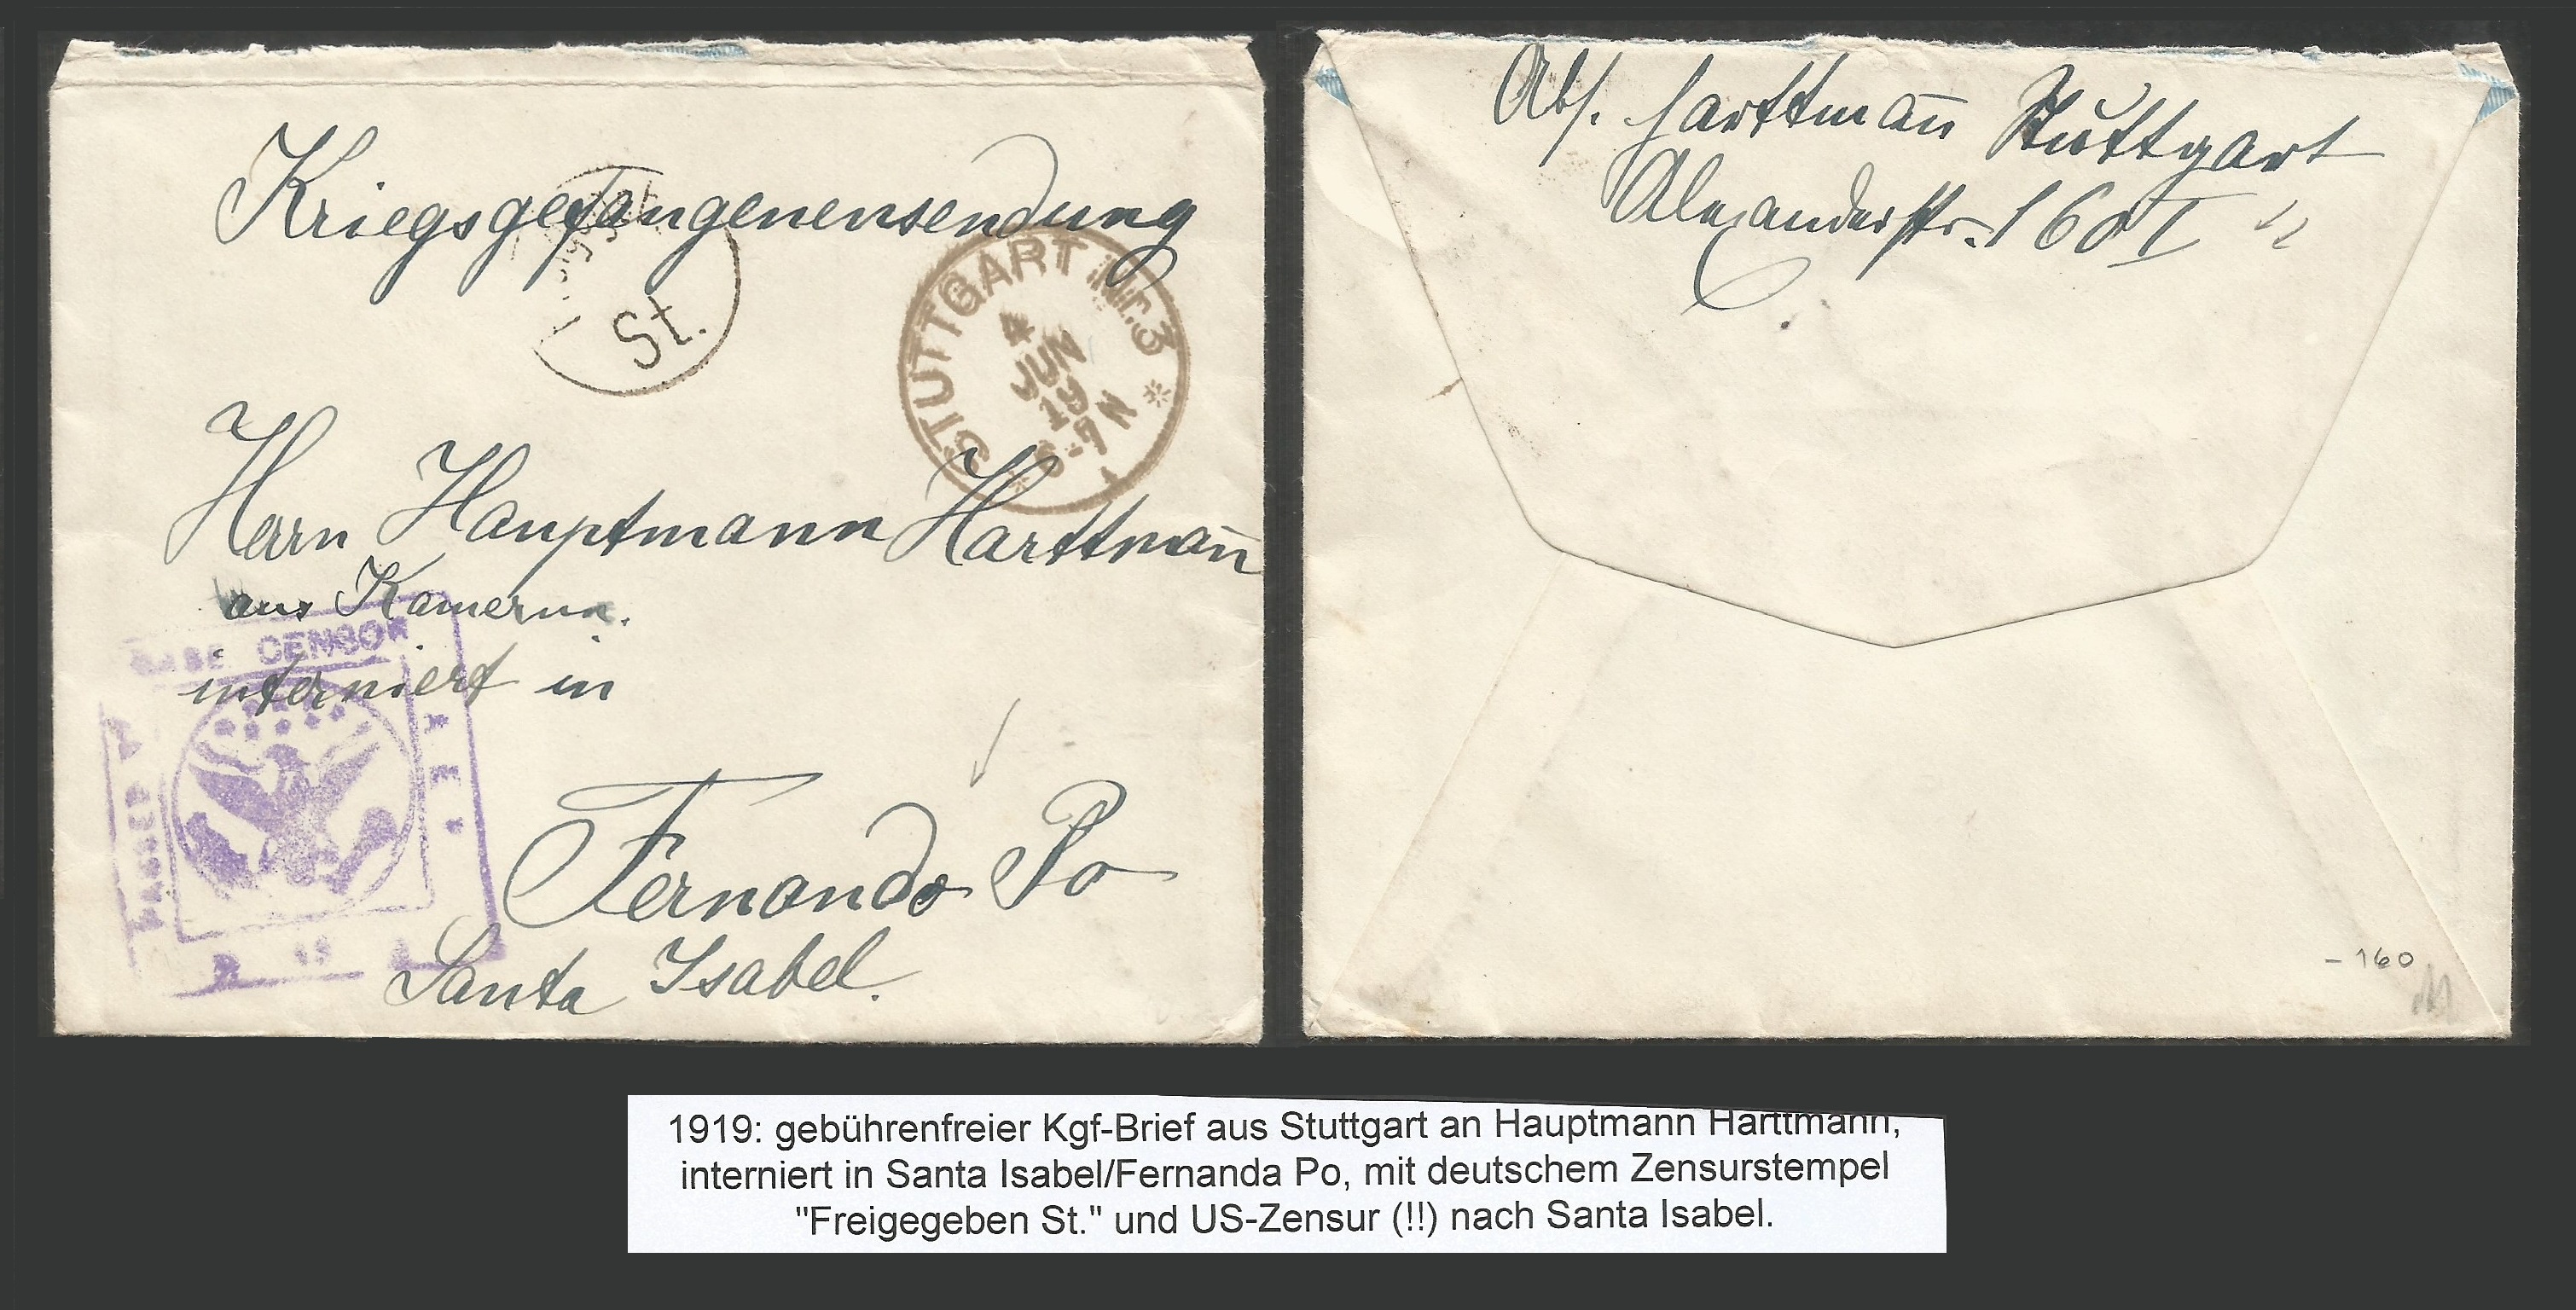 Kriegsgefangenensendung
St.
STUTTGART Nr. 3
4
JUN
19
3-4 N
Herrn Hauptmann Harttmañ
aus Kamerun.
BASE CENSOR
interniert in
PASSED
A E F
Fernando Po
Santa Isabel.
Abs. Harttmañ Stuttgart
Alexanderstr. 160 I
- 160
1919: gebührenfreier Kgf-Brief aus Stuttgart an Hauptmann Harttmann,
interniert in Santa Isabel/Fernanda Po, mit deutschem Zensurstempel
"Freigegeben St." und US-Zensur (!!) nach Santa Isabel.